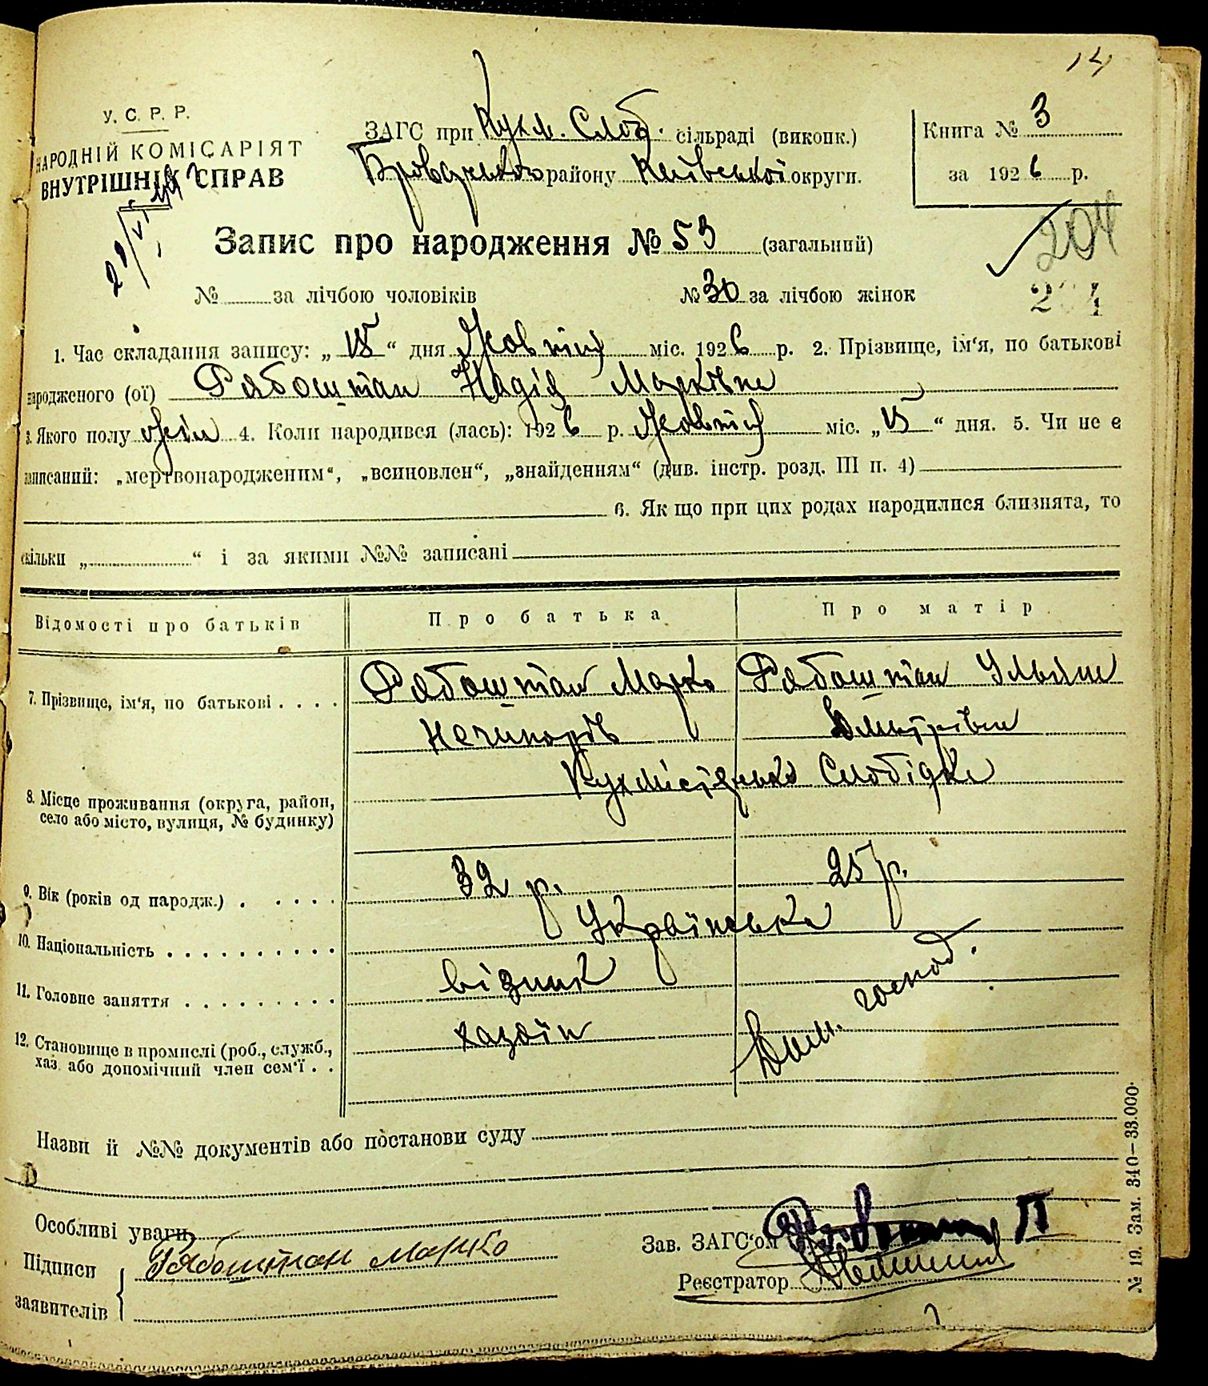 14
У. С. Р. Р.
НАРОДНІЙ КОМІСАРІЯТ
ВНУТРІШНІХ СПРАВ
ЗАГС при Кухм. Слоб. сільраді (виконк.)
Броварського району Київської округи.
Книга № 3
за 1926 р.
Запис про народження № 53 (загальний)
204
№ за лічбою чоловіків № 30 за лічбою жінок
204
1. Час складання запису: „ “ дня Жовтня міс. 1926 р. 2. Прізвище, ім'я, по батькові
народженого (ої) Рабоштан Надія Марківна
3. Якого полу жін 4. Коли народився (лась): 1926 р. Жовтня міс. „ “ дня. 5. Чи не є
записаний: „мертвонародженим“, „всиновлен“, „знайденням“ (див. інстр. розд. III п. 4)
6. Як що при цих родах народилися близнята, то
скільки „ “ і за якими №№ записані
Відомості про батьків Про батька Про матір
7. Прізвище, ім'я, по батькові . . . . Рабоштан Марко Рабоштан Уляна
Нечипорів Дмитрівна
8. Місце проживання (округа, район,
село або місто, вулиця, № будинку)
Кухмістерська Слобідка
9. Вік (років од народж.) . . . . . 32 р. 25 р.
10. Національність . . . . . . . . . . Українська
11. Головне заняття . . . . . . . . . візник Дом. господ.
12. Становище в промислі (роб., служб.,
хаз. або допомічний член сем'ї . .
хазяїн
Назви й №№ документів або постанови суду
Особливі уваги
Підписи
заявителів
Рабоштан Марко
Зав. ЗАГС'ом
Реєстратор
№ 19. Зам. 340—33.000.